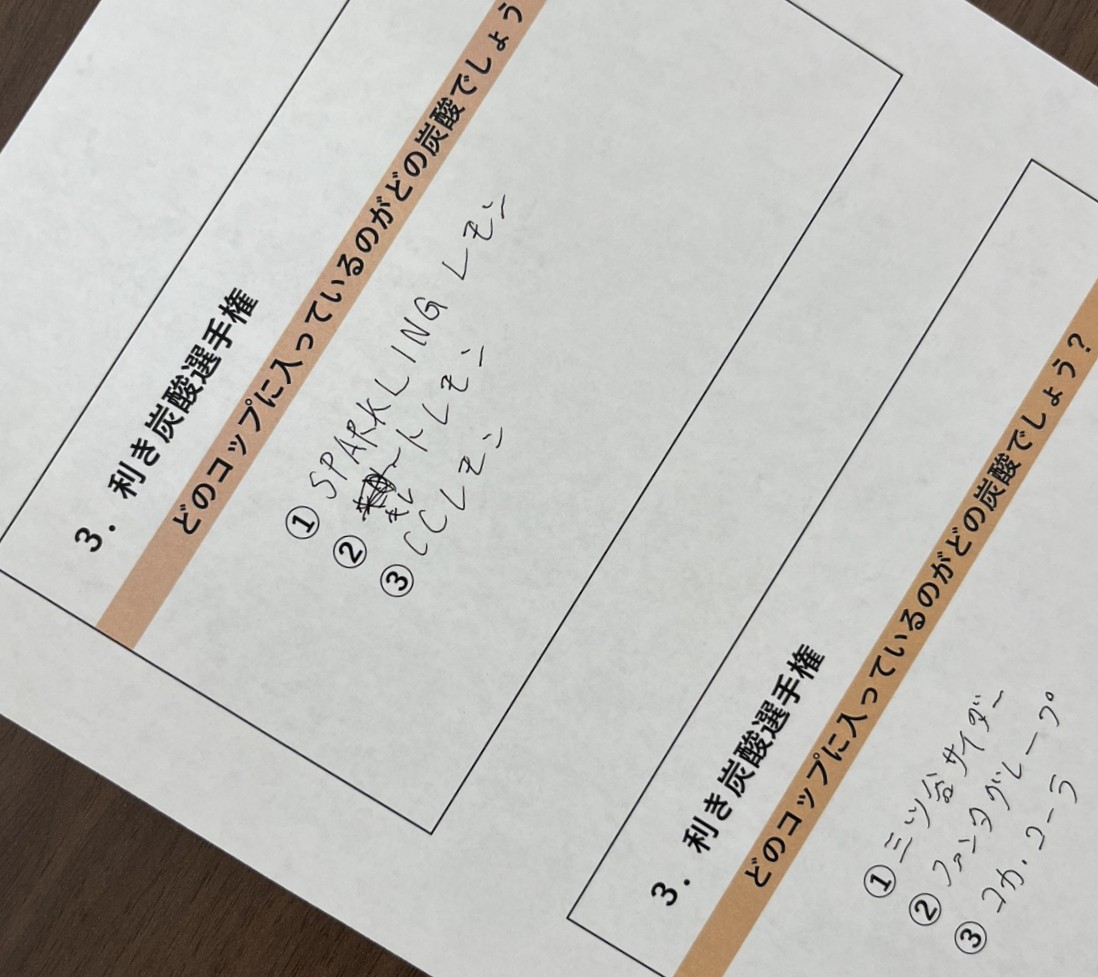 3. 利き炭酸選手権
どのコップに入っているのがどの炭酸でしょう
① SPARKLING レモン
② キレートレモン
③ CCレモン
3. 利き炭酸選手権
どのコップに入っているのがどの炭酸でしょう？
① 三ツ谷サイダー
② ファンタグレープ
③ コカ・コーラ